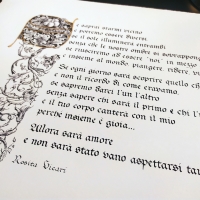 sapessi starmi vicino
e potremo essere diversi,
se il sole illuminerà entrambi
senza che le nostre ombre si sovrappongano,
se riusciremo ad essere "noi" in mezzo
e insieme al mondo piangere, ridere, vi
Se ogni giorno sarà scoprire quello ch
e non il ricordo di come eravamo,
se sapremo darci l'un l'altro
senza sapere chi sarà il primo e chi l'
e il tuo corpo canterà con il mio
perché insieme è gioia...
Allora sarà amore
e non sarà stato vano aspettarsi tan
Rosita Vicari